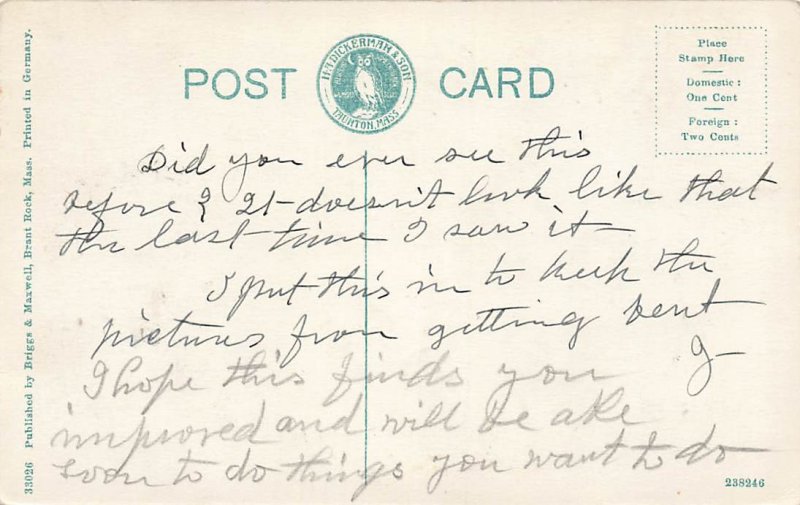 POST CARD
H.A. DICKERMAN & SON
TAUNTON, MASS.
Place
Stamp Here
Domestic:
One Cent
Foreign:
Two Cents
Did you ever see this
before? It doesn't look like that
the last time I saw it
I put this in to keep the
pictures from getting bent
J
I hope this finds you
improved and will be able
soon to do things you want to do
33026 Published by Briggs & Maxwell, Brant Rock, Mass. Printed in Germany.
238246